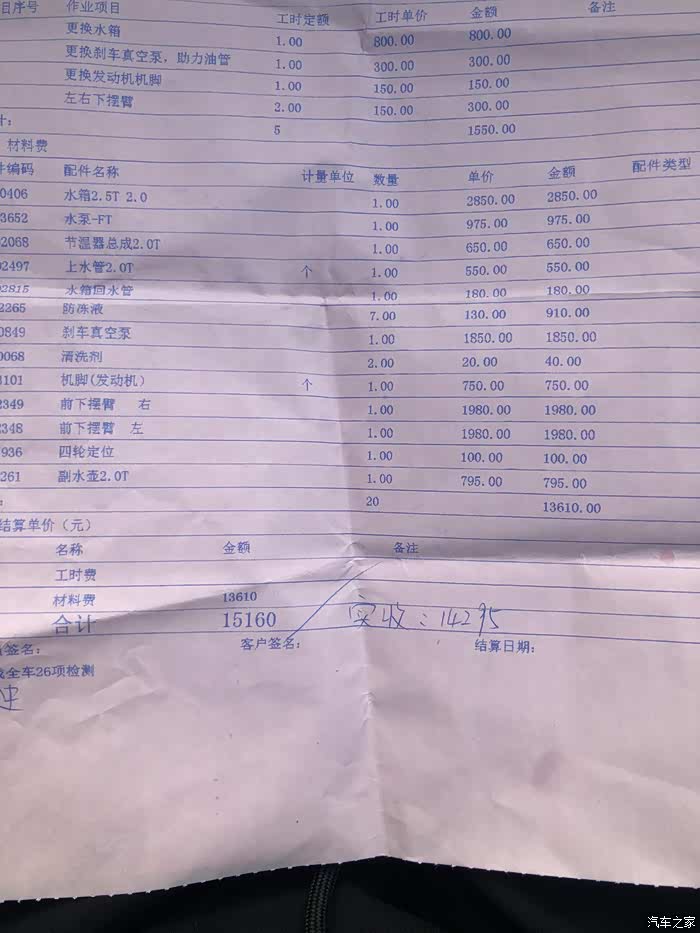 目序号 作业项目 工时定额 工时单价 金额 备注
更换水箱 1.00 800.00 800.00
更换刹车真空泵，助力油管 1.00 300.00 300.00
更换发动机机脚 1.00 150.00 150.00
左右下摆臂 2.00 150.00 300.00
计： 5 1550.00
材料费
件编码 配件名称 计量单位 数量 单价 金额 配件类型
0406 水箱2.5T 2.0 1.00 2850.00 2850.00
3652 水泵-FT 1.00 975.00 975.00
2068 节温器总成2.0T 1.00 650.00 650.00
02497 上水管2.0T 个 1.00 550.00 550.00
02815 水箱回水管 1.00 180.00 180.00
2265 防冻液 7.00 130.00 910.00
0849 刹车真空泵 1.00 1850.00 1850.00
0068 清洗剂 2.00 20.00 40.00
3101 机脚(发动机） 个 1.00 750.00 750.00
2349 前下摆臂 右 1.00 1980.00 1980.00
2348 前下摆臂 左 1.00 1980.00 1980.00
936 四轮定位 1.00 100.00 100.00
261 副水壶2.0T 1.00 795.00 795.00
： 20 13610.00
结算单价（元）
名称 金额 备注
工时费
材料费 13610
合计 15160 实收：14295
签名： 客户签名： 结算日期：
全车26项检测
汽车之家